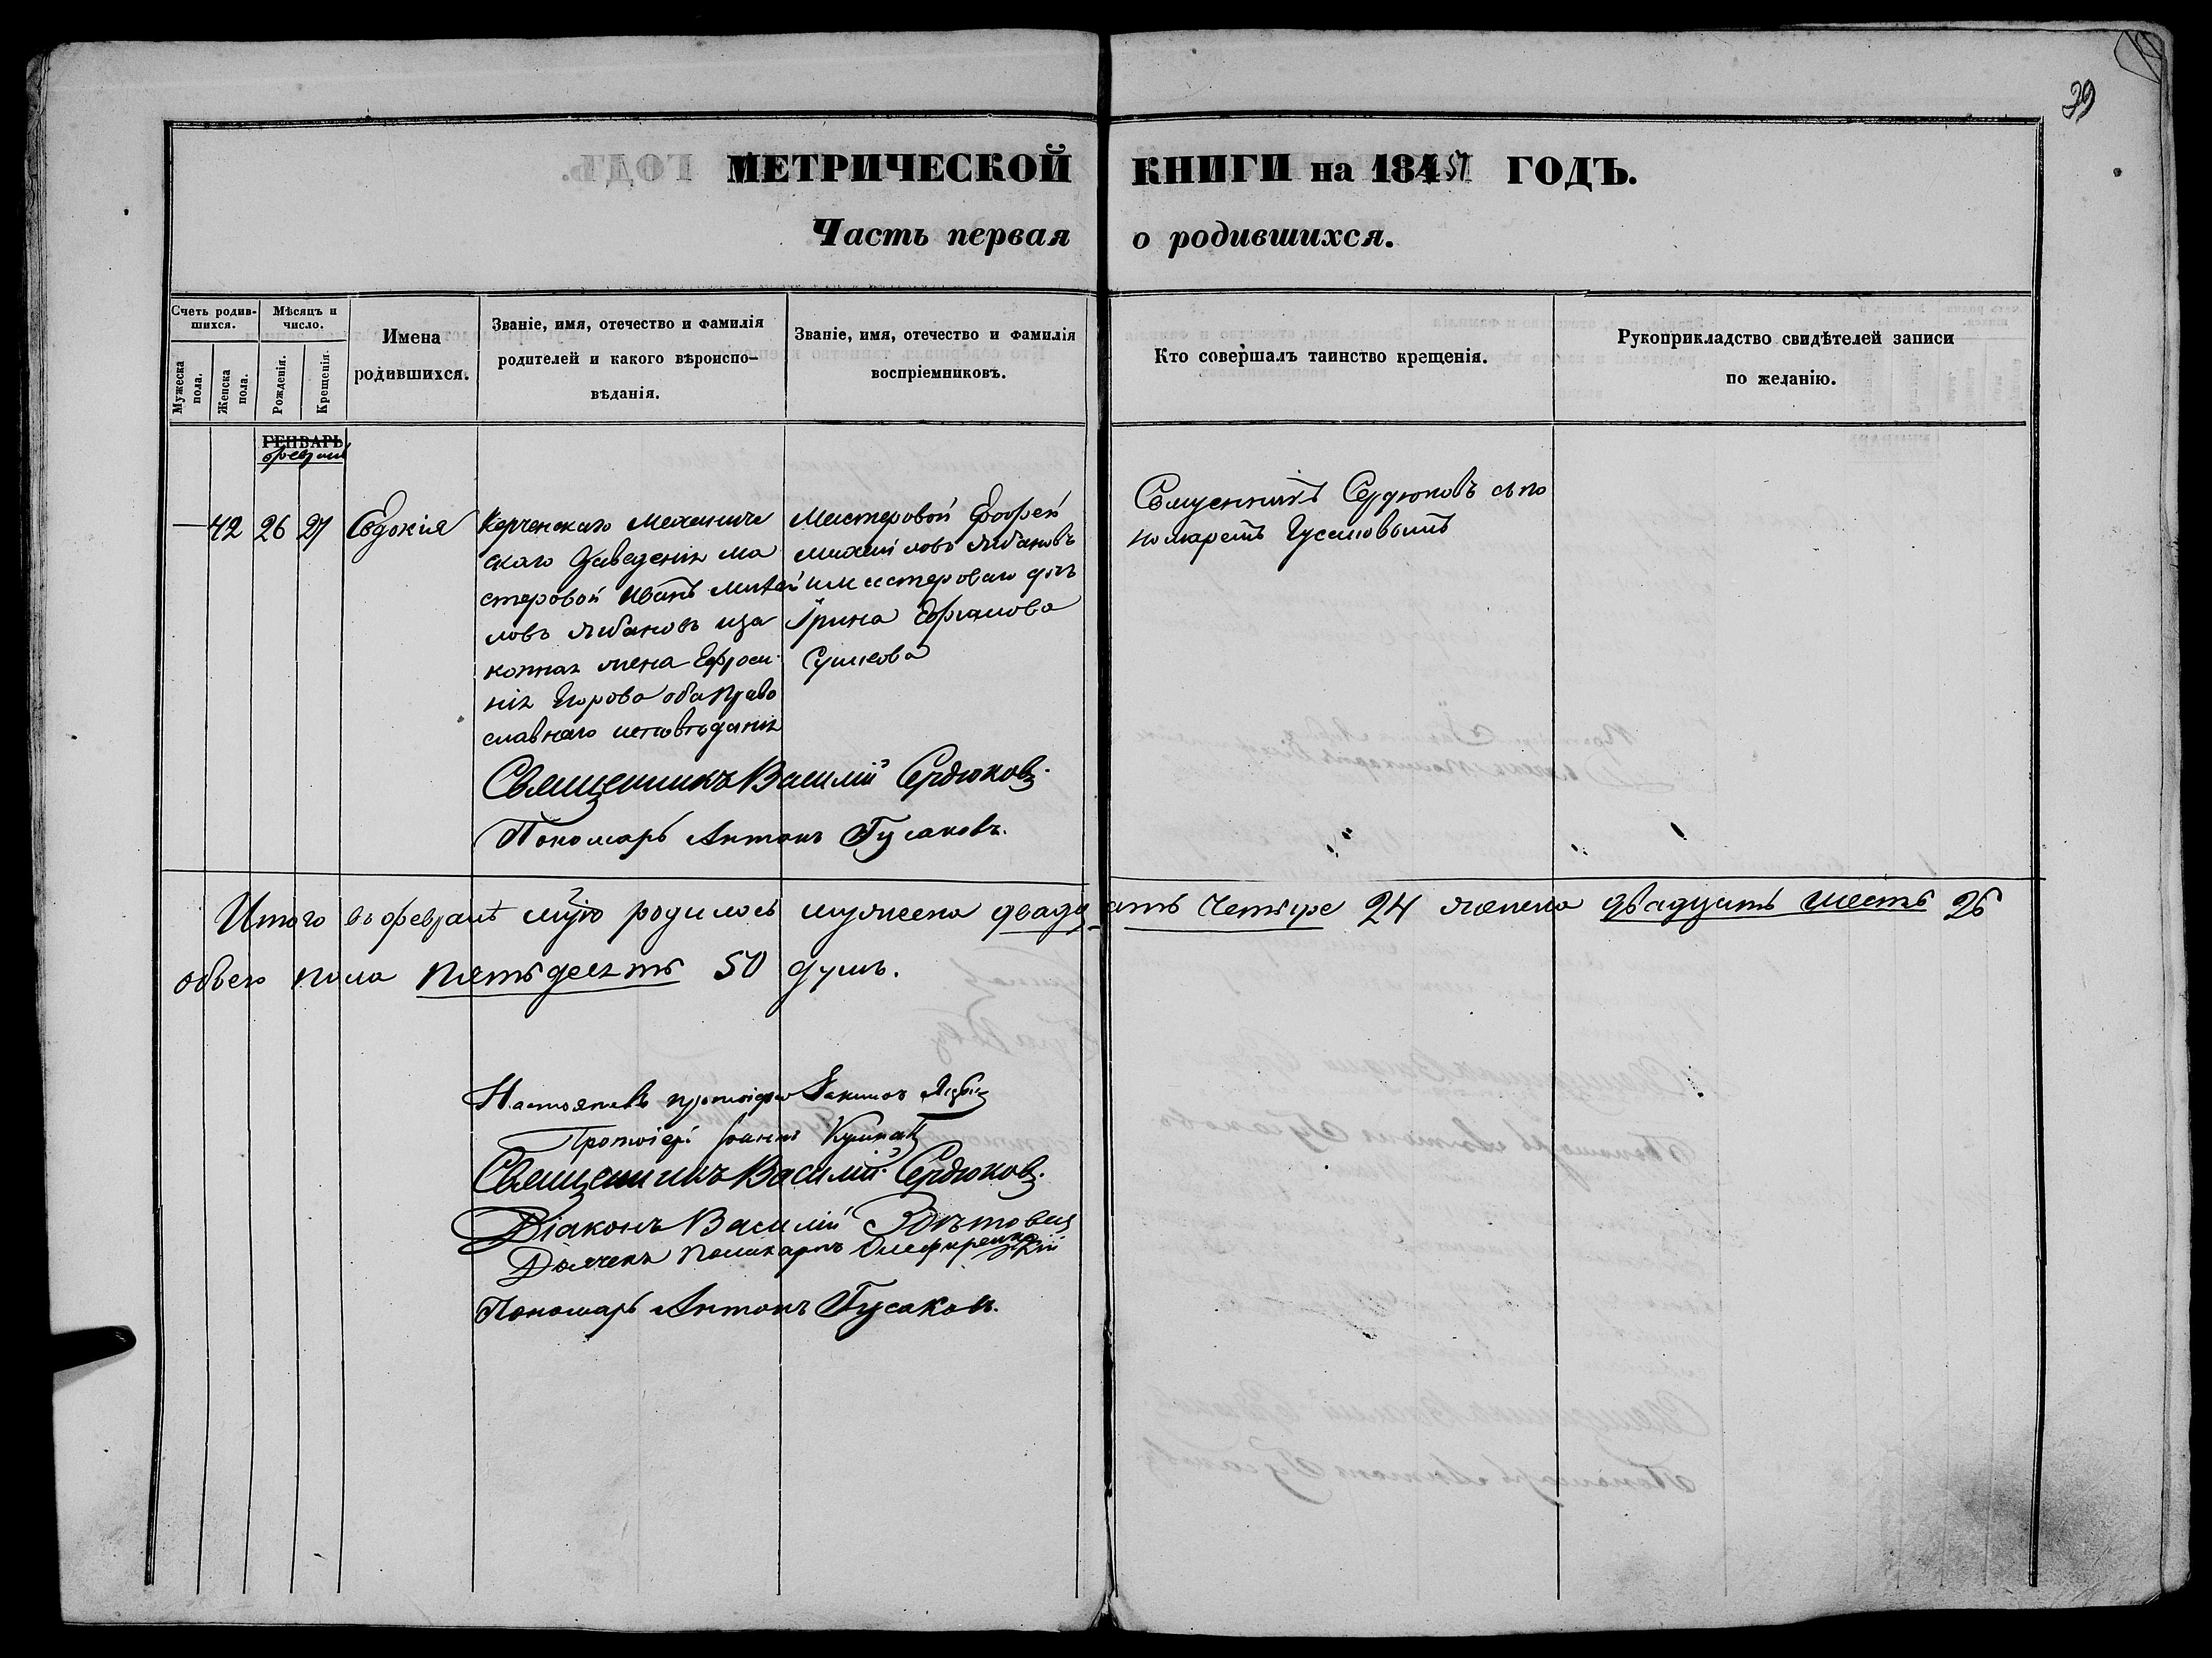 39
МЕТРИЧЕСКОЙ КНИГИ на 184 51 ГОДЪ.
Часть первая о родившихся.
Счетъ родив-
шихся.
Мужеска пола.
Женска пола.
Мѣсяцъ и
число.
Рожденія.
Крещенія.
Имена
родившихся.
Званіе, имя, отечество и фамилія
родителей и какого вѣроиспо-
вѣданія.
Званіе, имя, отечество и фамилія
воспріемниковъ.
Кто совершалъ таинство крещенія.
Рукоприкладство свидѣтелей записи
по желанію.
ГЕНВАРЬ
февраль
42 26 27 Евдокія
Керченскаго механиче
скаго Заведенія ма
стеровой Иванъ Михай
ловъ Лобановъ и за
конная жена Ефроси
нія Егорова оба право
славнаго исповѣданія
Мастеровой
Михайловъ Лобановъ
и мастероваго дочь
Ирина
Сушкова
Священникъ Сердюковъ съ по
номаремъ Гусаковымъ
Священникъ Василій Сердюковъ.
Пономарь Антонъ Гусаковъ.
Итого въ февралѣ родилось мужеска двадцать четыре 24 женска двадцать шесть 26
обоего пола пятьдесятъ 50 душъ.
протоіерей
Протоіерей Іоаннъ
Священникъ Василій Сердюковъ.
Діаконъ Василій
Дьячекъ Поликарпъ
Пономарь Антонъ Гусаковъ.